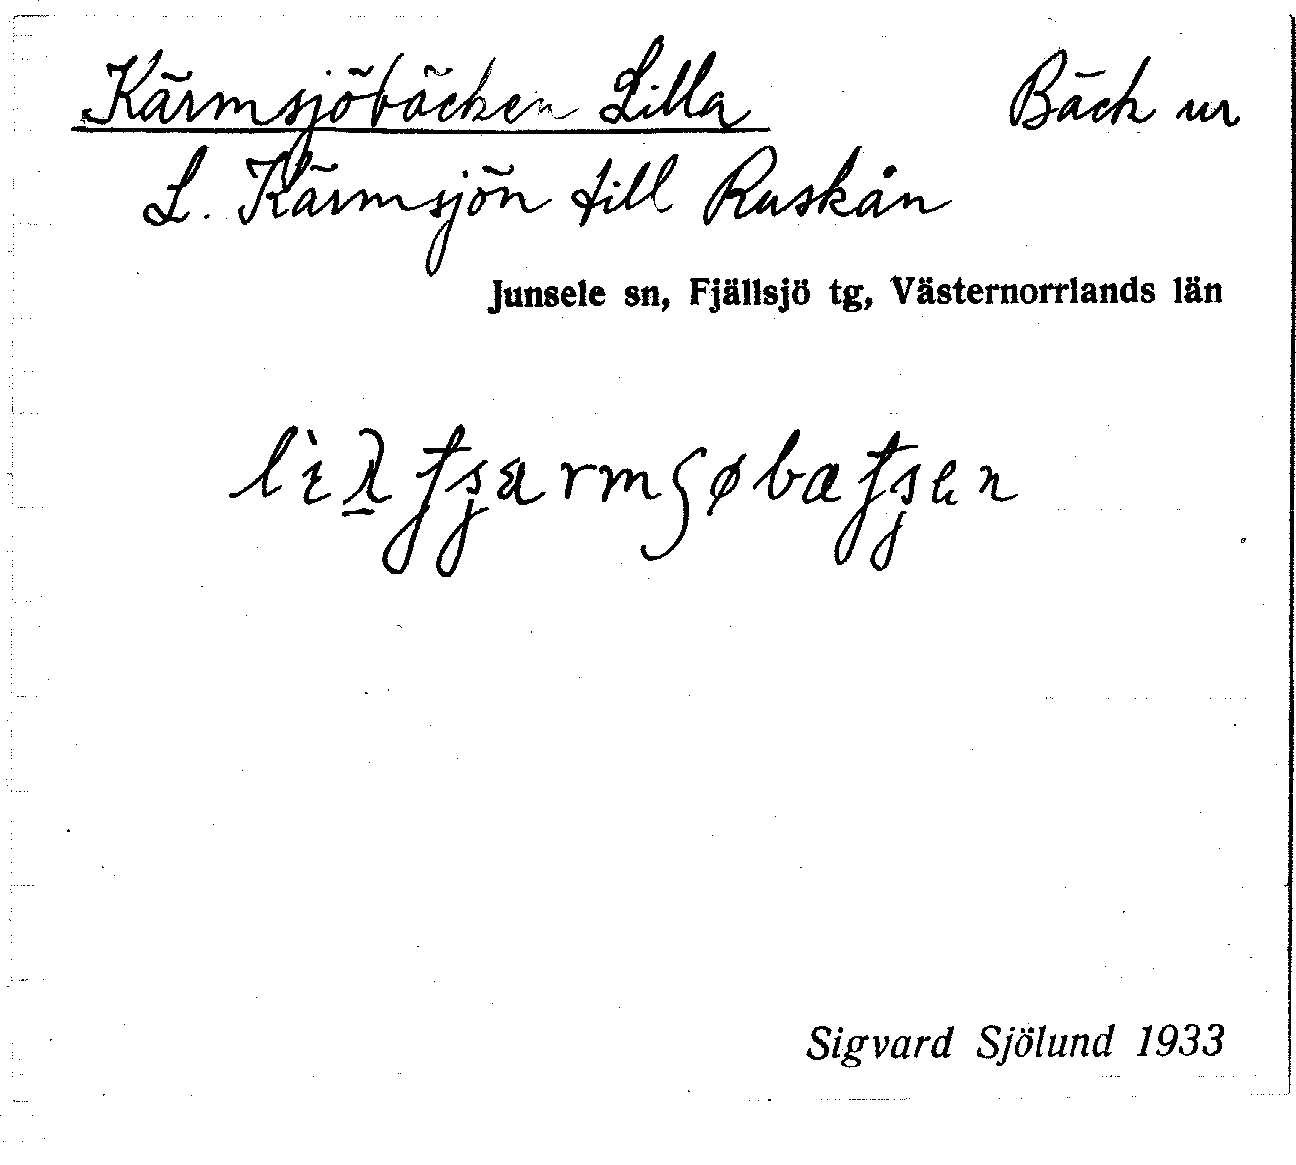 Kärmsjöbäcken Lilla Bäck ur
L. Kärmsjön till Ruskån
Junsele sn, Fjällsjö tg, Västernorrlands län
Sigvard Sjölund 1933